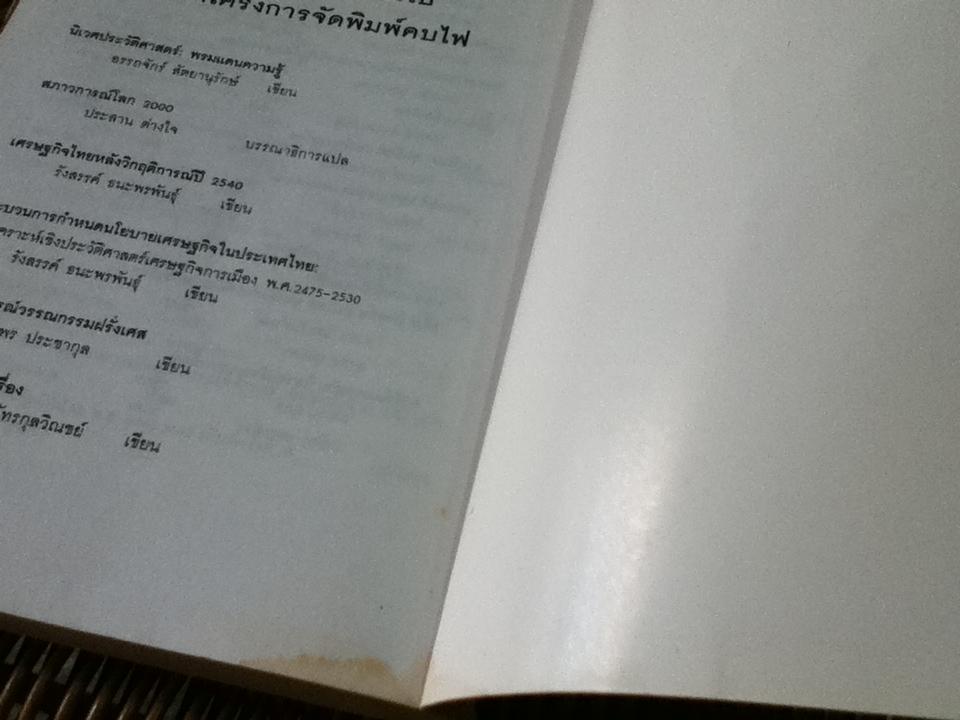 โครงการจัดพิมพ์คบไฟ
นิเวศประวัติศาสตร์: พรมแดนความรู้
อรรถจักร์ สัตยานุรักษ์ เขียน
สภาวการณ์โลก 2000
ประสาน ต่างใจ บรรณาธิการแปล
เศรษฐกิจไทยหลังวิกฤติการณ์ปี 2540
รังสรรค์ ธนะพรพันธุ์ เขียน
ะบวนการกำหนดนโยบายเศรษฐกิจในประเทศไทย:
คราะห์เชิงประวัติศาสตร์เศรษฐกิจการเมือง พ.ศ.2475-2530
รังสรรค์ ธนะพรพันธุ์ เขียน
รณ์วรรณกรรมฝรั่งเศส
พร ประชากุล เขียน
รื่อง
ัทรกุลวิณชย์ เขียน